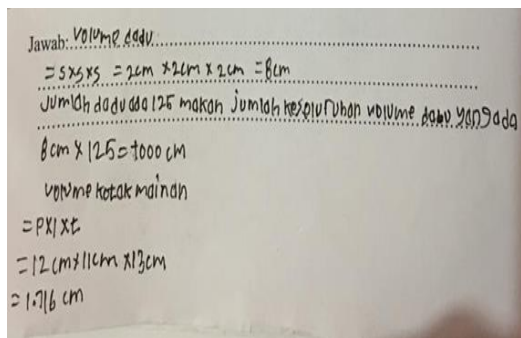 Jawab: Volume dadu
= sxsxs = 2cm x 2cm x 2cm = 8cm
Jumlah dadu ada 125 makan jumlah keseluruhan volume dadu yang ada
8cm x 125 = 1000 cm
volume kotak mainan
= Pxlxt
= 12cm x 11cm x 13cm
= 1.716 cm